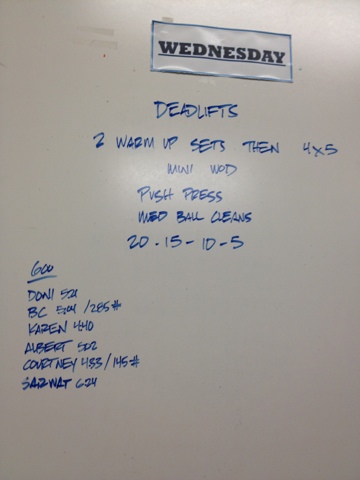 WEDNESDAY
DEADLIFTS
2 WARM UP SETS THEN 4x5
MINI WOD
PUSH PRESS
MED BALL CLEANS
20 - 15 - 10 - 5
600
DONI 521
BC 504 / 285#
KAREN 440
ALBERT 502
COURTNEY 433 / 145#
SARWAT 624